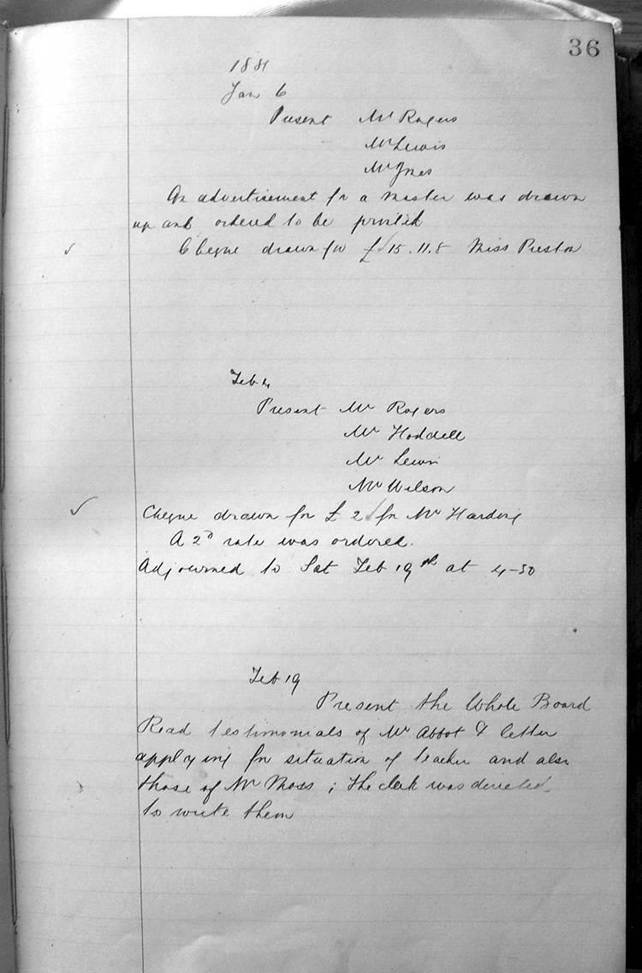 36
1881
Jan 6
Present Mr Rogers
Mr Lewis
Mr Jones
An advertisement for a Master was drawn
up and ordered to be printed
Cheque drawn for £15.11.8 Miss Preston
Feb 4
Present Mr Rogers
Mr Hoddell
Mr Lewis
Mr Wilson
Cheque drawn for £2 for Mr Harding
A 2d rate was ordered.
Adjourned to Sat Feb 19th at 4-30
Feb 19
Present the Whole Board
Read testimonials of Mr Abbot & letter
applying for situation of teacher and also
those of Mr Moss; The clerk was directed
to write them